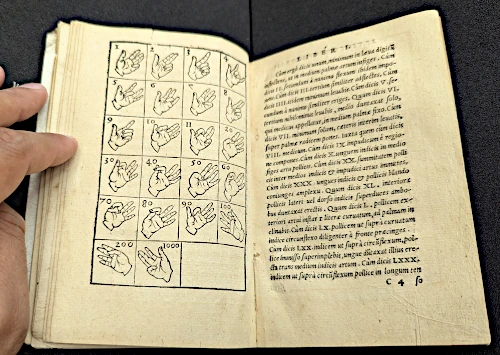 1 2 3 4
5 6 7 8
9 10 11 20
30 40 50 60
70 80 90 100
200 1000
LIBER I.
Cum ergò dicis unum, minimum in læua digitũ
inflectens, ut in medium palmæ artum infigas. Cum
dicis II. secundum à minimo flexum ibidem impo-
nes. Cum dicis III. tertium similiter adflectes. Cum
dicis IIII. itidem minimum leuabis. Cum dicis V. se-
cundum à minimo similiter eriges. Quum dicis VI.
tertium nihilominus leuabis, medio duntaxat solo,
qui medicus appellatur, in medium palmæ fixo. Cum
dicis VII. minimum solum, cæteris interim leuatis,
super palmæ radicem pones. Iuxta quem cum dicis
VIII. medicum. Cum dicis IX. impudicum è regio-
ne compones. Cum dicis X. unguem indicis in medio
figes artu pollicis. Cum dicis XX. summitatem polli
cis inter medios indicis & impudici artus immittes.
Cum dicis XXX. ungues indicis & pollicis blando
coniunges amplexu. Quum dicis XL. interiora
pollicis lateri uel dorso indicis superduces, ambo-
bus duntaxat erectis. Cum dicis L. pollicem ex-
teriori artu instar Γ literæ curuatum, ad palmam in
clinabis. Cum dicis LX. pollicem ut suprà curuatum
indice circunflexo diligenter à fronte præcinges.
Cum dicis LXX. indicem ut suprà circũflexum, pol-
lice immisso superimplebis, ungue dũtaxat illius ere-
cto trans medium indicis artum. Cum dicis LXXX.
indicem ut suprà circũflexum pollice in longum ten
C 4 so